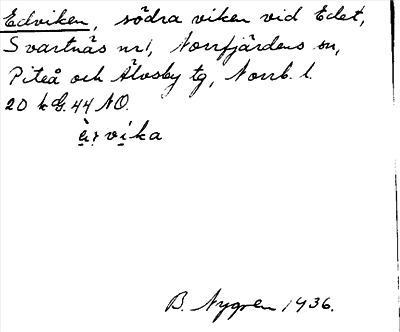 Edviken, södra viken vid Edet,
Svartnäs nr1, Norrfjärdens sn,
Piteå och Älvsby tg, Norrb. l.
20 kG. 44 NO.
B. Nygren 1936.